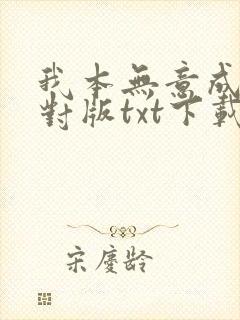 我本無意成
對版txt下載
宋慶齡